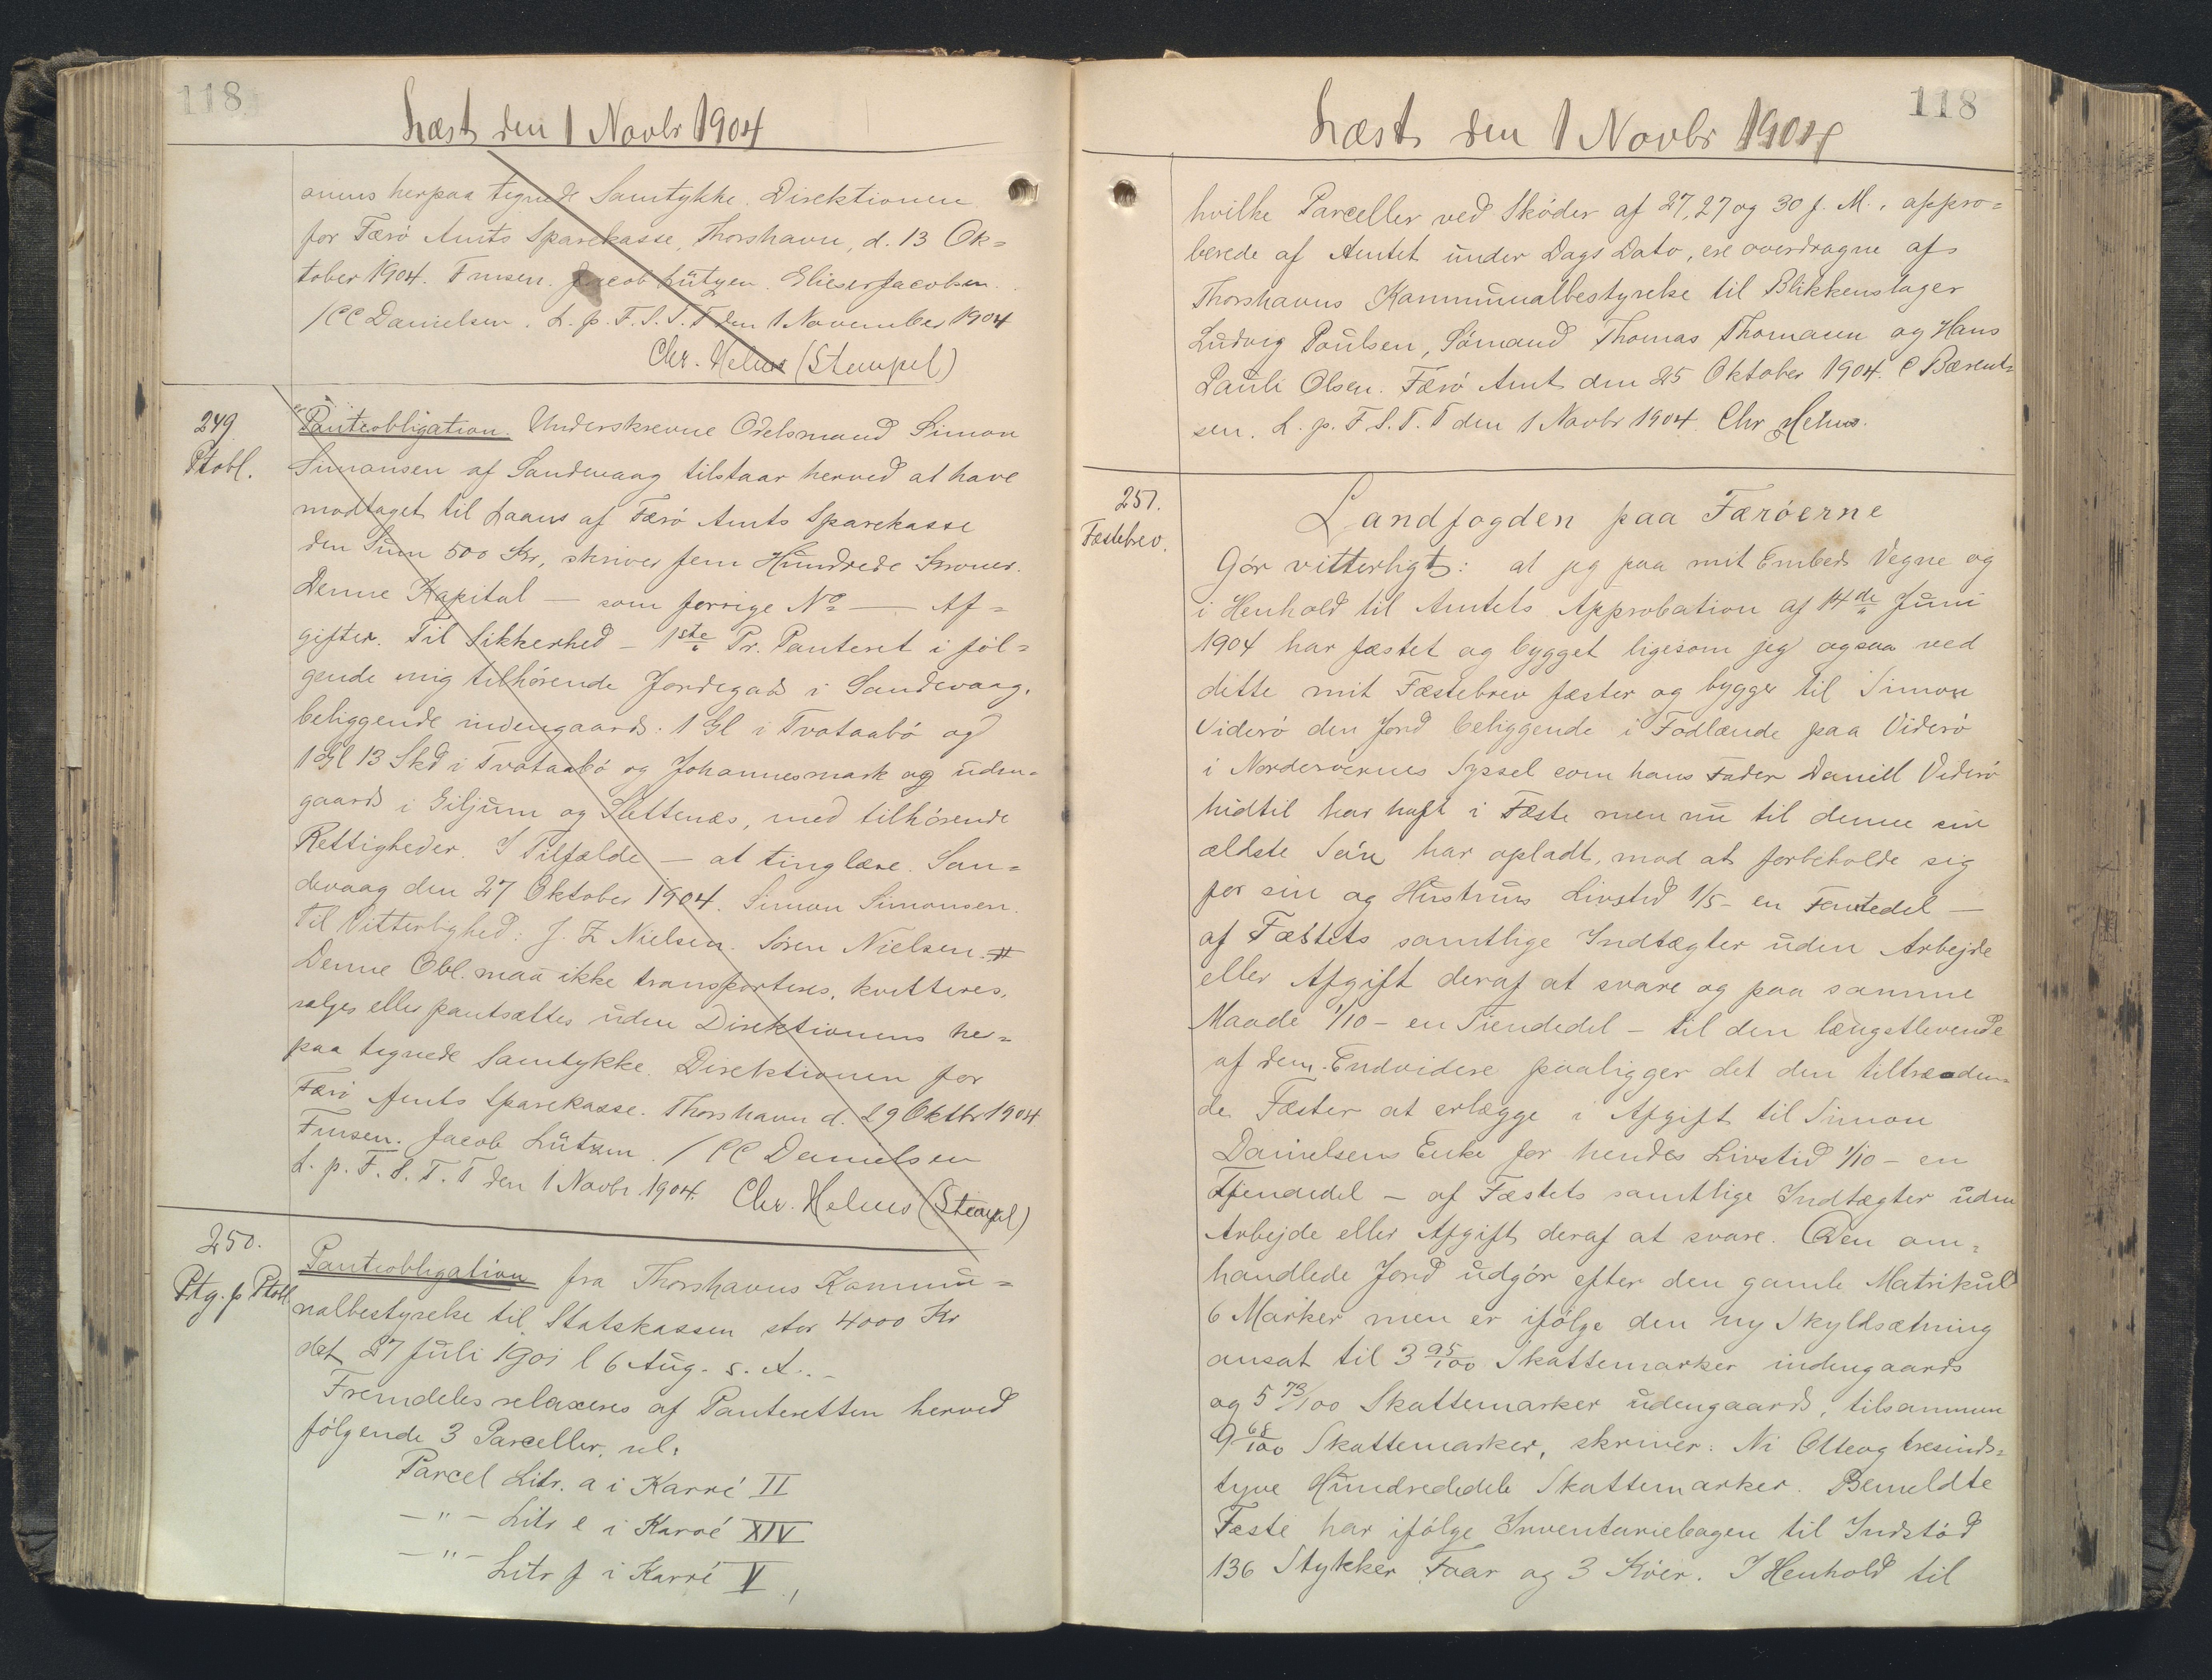 118
Læst den 1 Novbr 1904
onens herpaa tegnede Samtykke. Direktionen
for Færø Amts Sparekasse, Thorshavn, d. 13 Ok=
tober 1904. Finsen. Jacob Lützen. Elieser Jacobsen.
/CC Danielsen. L. p. F. S. T. T den 1 November 1904
Chr. Helms (Stempel)
249
Ptobl.
Panteobligation. Underskrevne Odelsmand Simon
Simonsen af Sandevaag tilstaar herved at have
modtaget til Laans af Færø Amts Sparekasse
den Sum 500 Kr, skriver fem Hundrede Kroner.
Denne Kapital — som forrige No — Af=
gifter. Til Sikkerhed – 1ste Pr. Panteret i føl=
gende mig tilhørende Jordegods i Sandevaag,
beliggende indengaards: 1 Gl i Tvotaabø og
1 Gl 13 Skd i Tvotaabø og Johannesmark og uden=
gaards i Giljum og Slettenæs, med tilhørende
Rettigheder. I Tilfælde — at tinglæse. San=
devaag den 27 Oktober 1904. Simon Simonsen.
Til Vitterlighed: J. Z Nielsen. Søren Nielsen. #
Denne Obl. maa ikke transporteres, kvitteres,
sælges eller pantsættes uden Direktionens her=
paa tegnede Samtykke. Direktionen for
Færø Amts Sparekasse. Thorshavn d. 29 Oktbr 1904
Finsen. Jacob Lützen. /CC Danielsen
L. p. F. S. T. T den 1 Novbr 1904. Chr. Helms (Stempel)
250.
Ptg. p Ptobl
Panteobligation fra Thorshavns Kommu=
nalbestyrelse til Statskassen stor 4000 Kr
dat 27 Juli 1901 l 6 Aug. s. A. –
Fremdeles relaxeres af Panteretten herved
følgende 3 Parceller, nl:
Parcel Litr. a i Karré II
— " – Litr e i Karré XIV
— " – Litr f i Karré V
118
Læst den 1 Novbr 1904
hvilke Parceller ved Skøder af 27, 27 og 30 f. M., appro=
berede af Amtet under Dags Dato, ere overdragne af
Thorshavns Kommunalbestyrelse til Blikkenslager
Ludvig Poulsen, Sømand Thomas Thomsen og Hans
Pauli Olsen. Færø Amt den 25 Oktober 1904. C Bærent=
sen. L. p. F. S. T. T den 1 Novbr 1904. Chr Helms.
251.
Fæstebrev.
Landfogden paa Færøerne
Gør vitterligt: at jeg paa mit Embeds Vegne og
i Henhold til Amtets Approbation af 14de Juni
1904 har fæstet og bygget ligesom jeg ogsaa ved
dette mit Fæstebrev fæster og bygger til Simon
Viderø den Jord beliggende i Fodlænde paa Viderø
i Norderøernes Syssel som hans Fader Daniel Viderø
hidtil har haft i Fæste men nu til denne sin
ældste Søn har opladt, mod at forbeholde sig
for sin og Hustrus Livstid 1/5 – en Femtedel —
af Fæstets samtlige Indtægter uden Arbejde
eller Afgift deraf at svare og paa samme
Maade 1/10 – en Tiendedel – til den længstlevende
af dem. Endvidere paaligger det den tiltræden=
de Fæster at erlægge i Afgift til Simon
Danielsens Enke for hendes Livstid 1/10 – en
Tiendedel – af Fæstets samtlige Indtægter uden
Arbejde eller Afgift deraf at svare. Den om=
handlede Jord udgør efter den gamle Matrikul
6 Marker men er ifølge den ny Skyldsætning
ansat til 3 95/100 Skattemarker indengaards
og 5 73/100 Skattemarker udengaards, tilsammen
9 68/100 Skattemarker, skriver: Ni Otteog tresinds=
tyve Hundrededele Skattemarker. Bemeldte
Fæste har ifølge Inventariebogen til Indstød
136 Stykker Faar og 3 Køer. I Henhold til